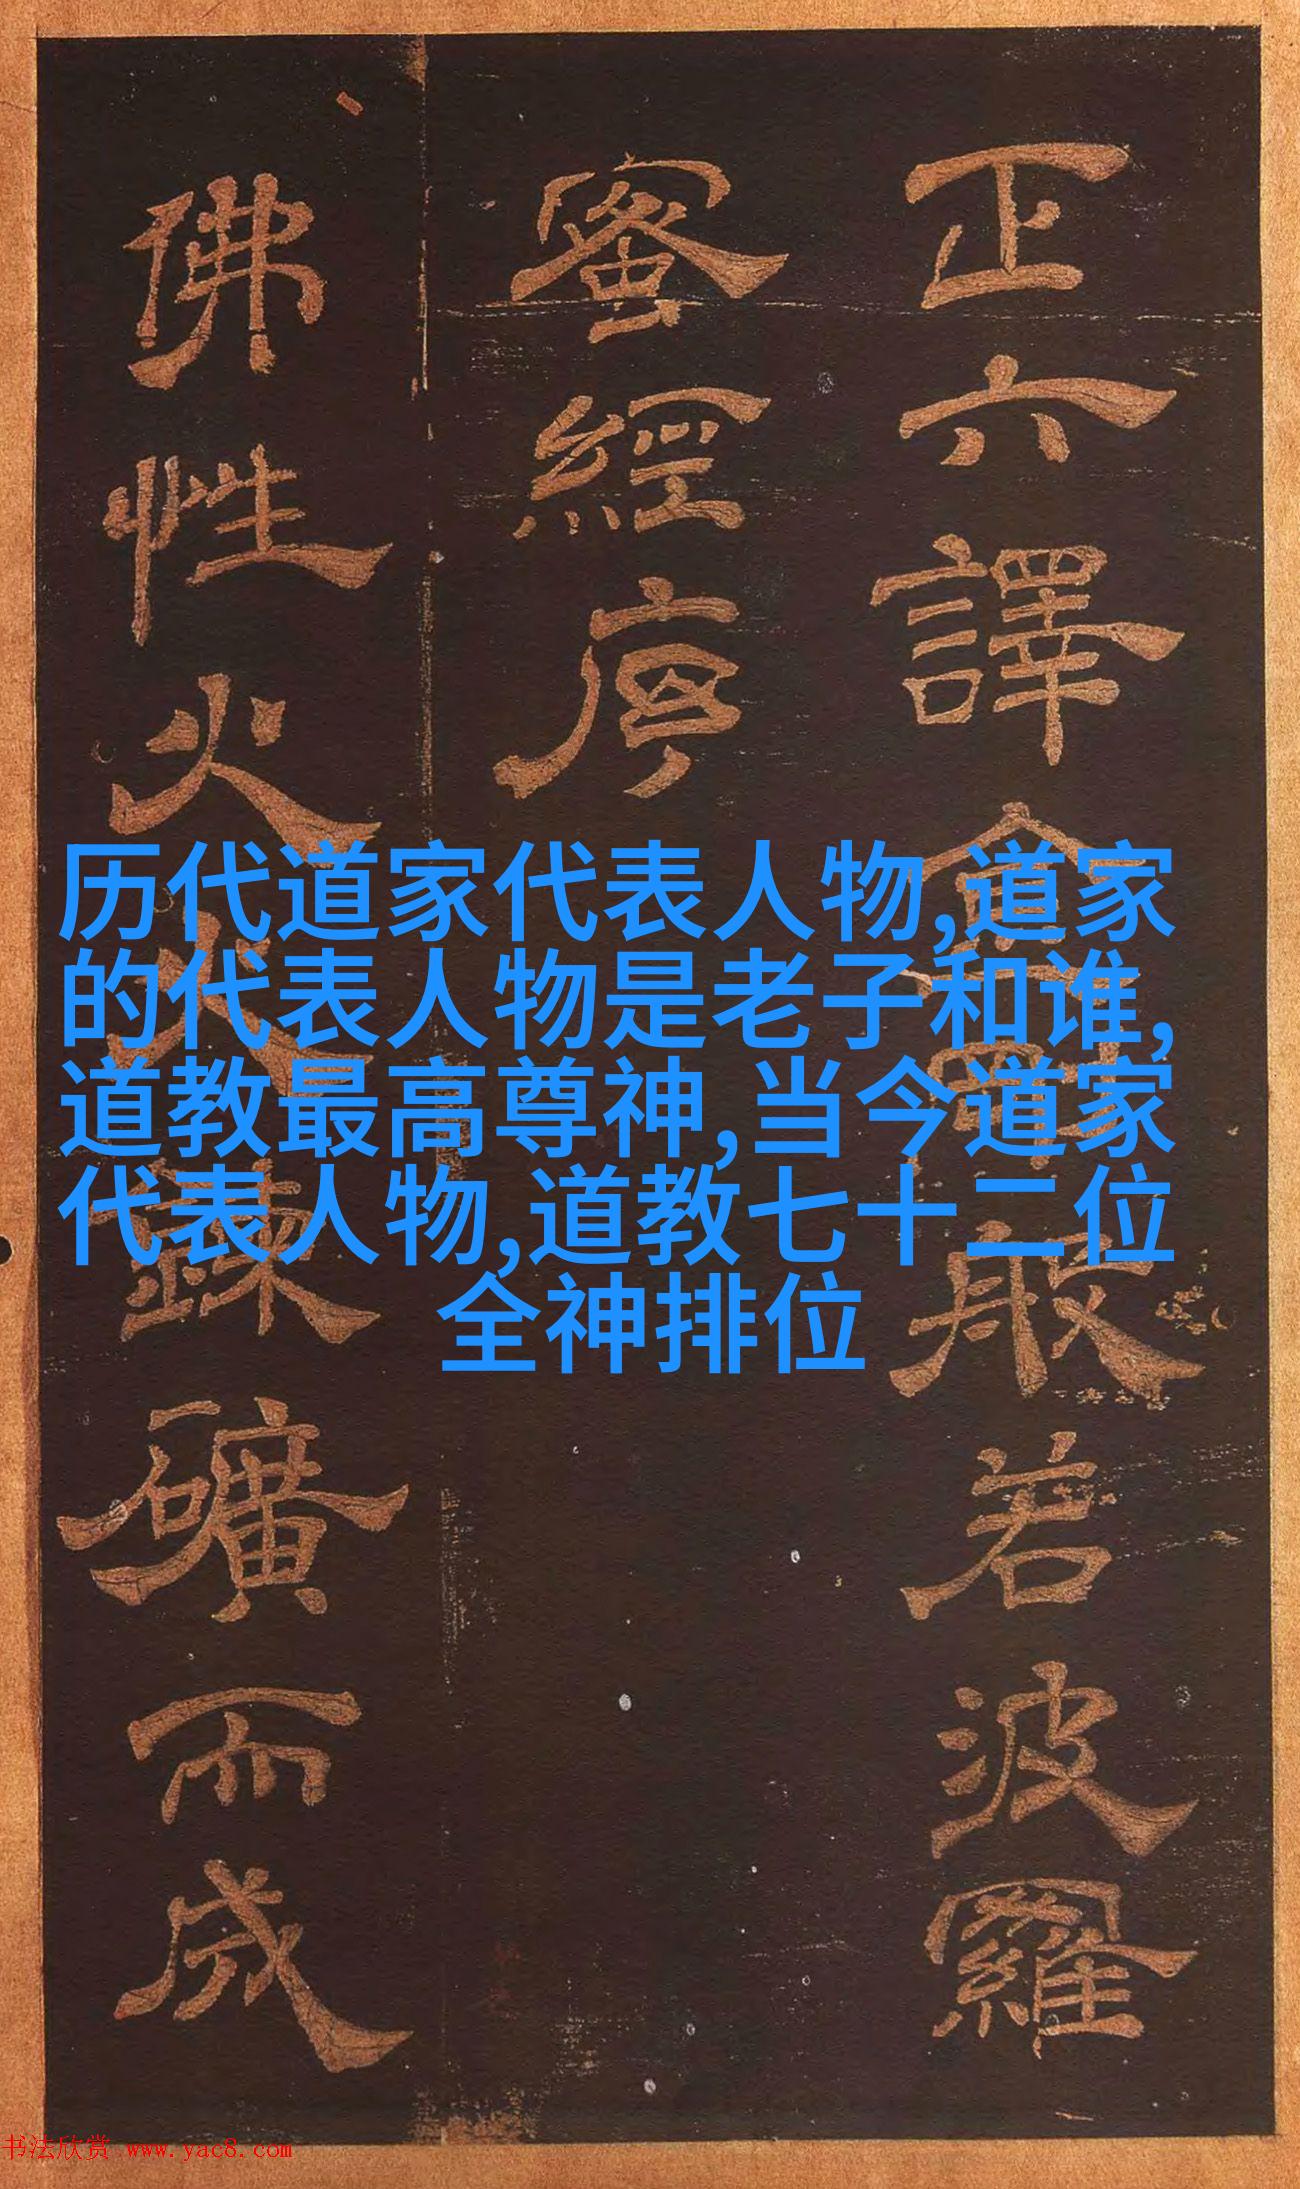 正六譯金剛般若波羅
蜜經序
佛性火火鍊礦而成
历代道家代表人物,道家
的代表人物是老子和谁,
道教最高尊神,当今道家
代表人物,道教七十二位
全神排位
书法欣赏 www.yac8.com